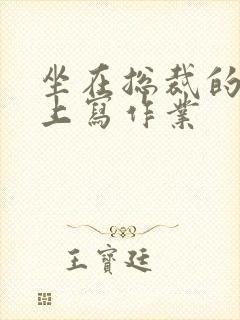 坐在总裁的
上寫作業
王寶廷